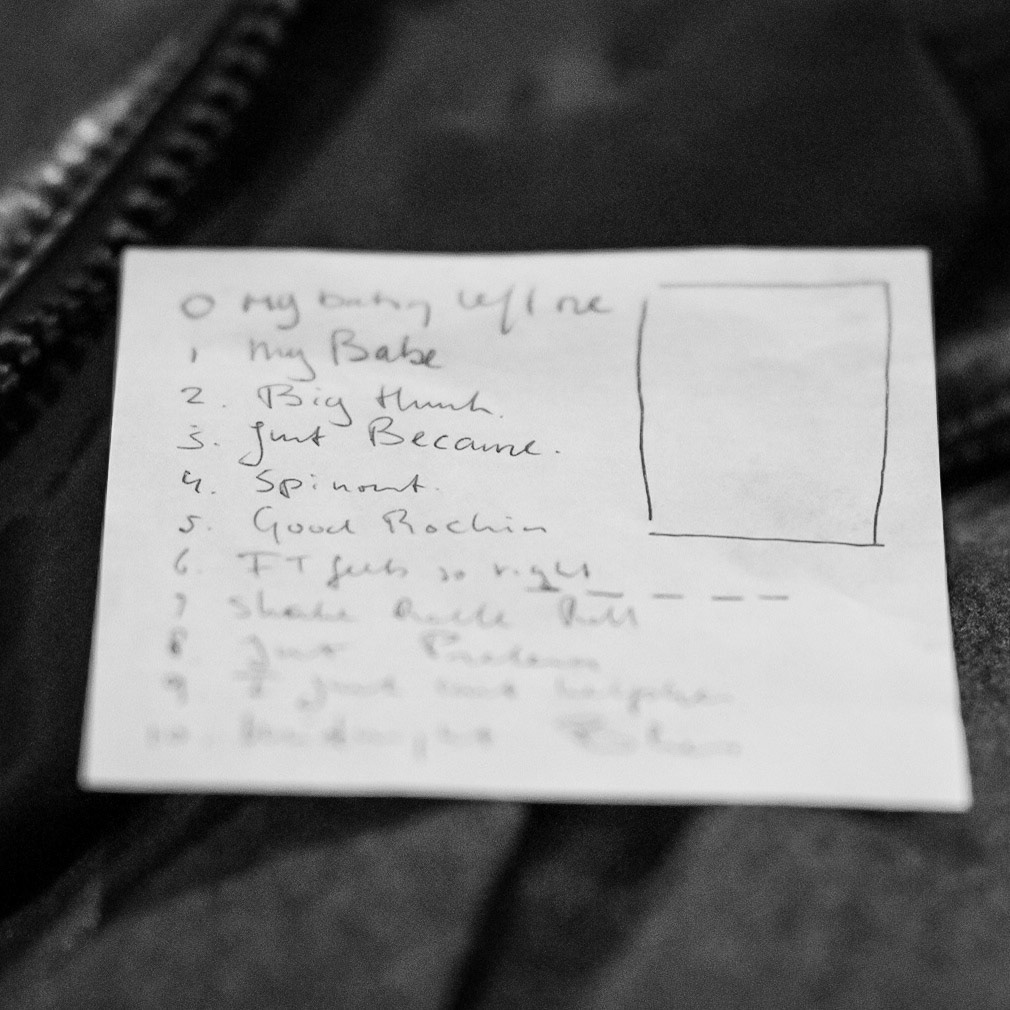 0 My baby left me
1 My Babe
2. Big Hunk.
3. Just Because.
4. Spinout.
5. Good Rockin
6. IT feels so right
7 Shake Rattle Roll
8 Just Pretend
9 I just can't help
10. Midnight